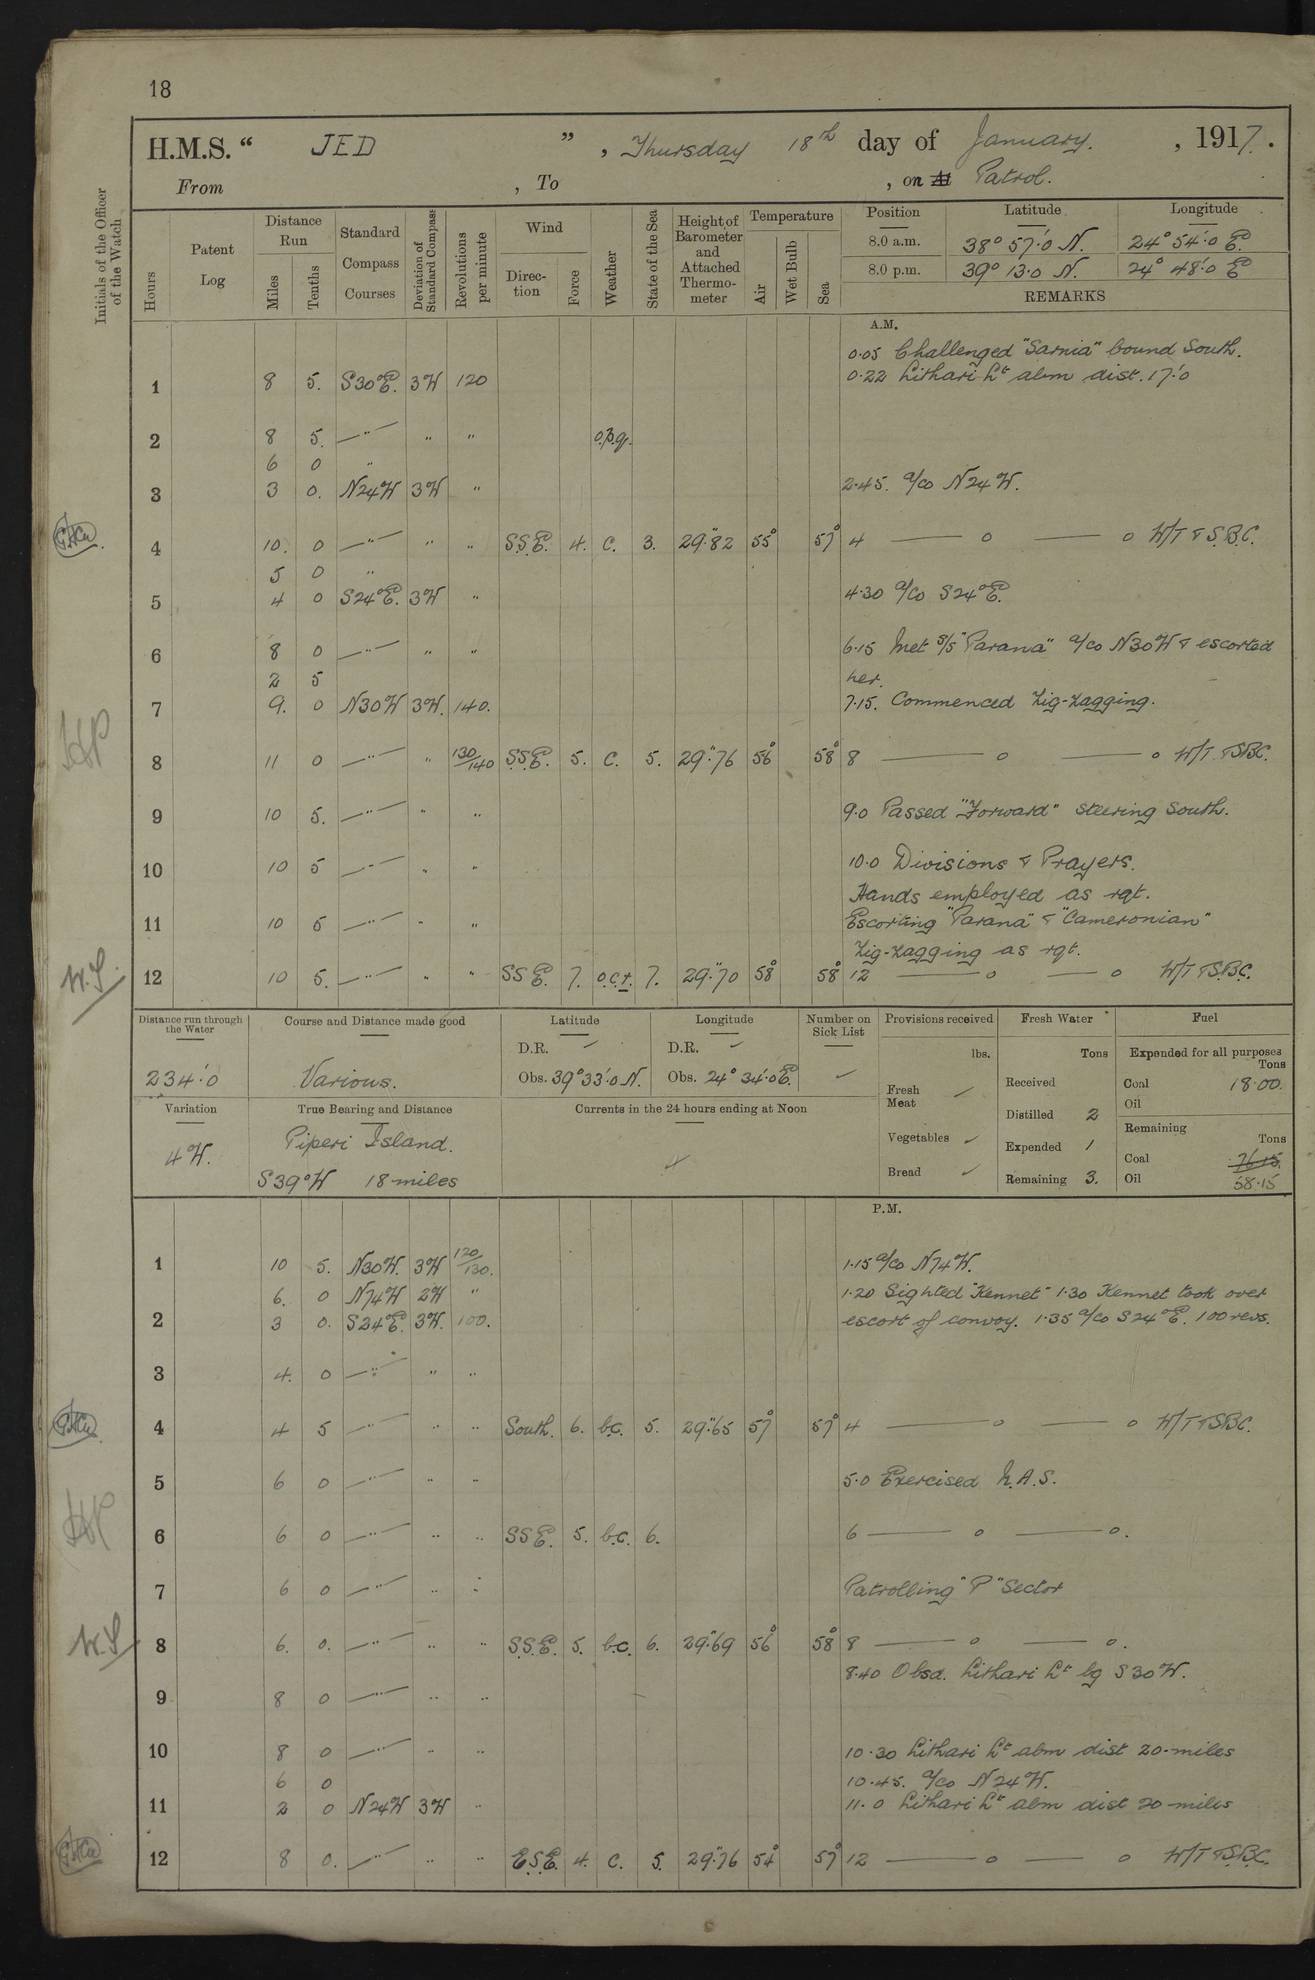 18
H.M.S. “ JED ” , Thursday 18th day of January. , 1917.
From , To , on At Patrol.
Initials of the Officer of the Watch
Hours
Patent Log
Distance Run
Miles
Tenths
Standard Compass Courses
Deviation of Standard Compass
Revolutions per minute
Wind
Direction
Force
Weather
State of the Sea
Height of Barometer and Attached Thermometer
Temperature
Air
Wet Bulb
Sea
Position Latitude Longitude
8.0 a.m. 38° 57'.0 N. 24° 54'.0 E
8.0 p.m. 39° 13.0 N. 24° 48'.0 E
REMARKS
A.M.
0.05 Challenged "Sarnia" bound South.
1 8 5. S30°E. 3W 120 0.22 Lithari Lt abm dist. 17'.0
2 8 5. —"— " " o.p.q.
6 0 "
3 3 0. N24W 3W " 2.45. a/co N24W.
4 10. 0 —"— " " S.S.E. 4. C. 3. 29".82 55° 57° 4 — o — o W/T & S.B.C.
5 0 "
5 4 0 S24°E. 3W " 4.30 a/co S24°E.
6 8 0 —"— " " 6.15 Met S/S "Parana" a/co N30W & escorted
2 5 her.
7 9. 0 N30W 3W. 140. 7.15. Commenced Zig-zagging.
8 11 0 —"— " 130/140 S.S.E. 5. C. 5. 29".76 56° 58° 8 — o — o W/T & SBC.
9 10 5. —"— " " 9.0 Passed "Forward" steering South.
10 10 5 —"— " " 10.0 Divisions & Prayers.
Hands employed as rqt.
11 10 5 —"— " " Escorting "Parana" & "Cameronian"
Zig-zagging as rqt.
12 10 5. —"— " " SSE. 7. o.c.t. 7. 29".70 58° 58° 12 — o — o W/T & S.B.C.
W.S.
Distance run through the Water
234'.0
Course and Distance made good
Various.
Latitude
D.R. ✓
Obs. 39°33'.0 N.
Longitude
D.R. ✓
Obs. 24° 34'.0 E.
Number on Sick List
✓
Provisions received
lbs.
Fresh Meat ✓
Vegetables ✓
Bread ✓
Fresh Water
Tons
Received
Distilled 2
Expended 1
Remaining 3.
Fuel
Expended for all purposes
Tons
Coal 18.00.
Oil
Remaining
Tons
Coal 76.15.
Oil 58.15
Variation
4W.
True Bearing and Distance
Piperi Island.
S39°W 18 miles
Currents in the 24 hours ending at Noon
P.M.
1 10 5. N30W. 3W 120/130. 1.15 a/co N74W.
6. 0 N74W 2W " 1.20 Sighted "Kennet" 1.30 Kennet took over
2 3 0. S24°E. 3W. 100. escort of convoy. 1.35 a/co S24°E. 100 revs.
3 4. 0 —"— " "
4 4 5 —"— " " South. 6. b.c. 5. 29".65 57° 57° 4 — o — o W/T & SBC.
5 6 0 —"— " " 5.0 Exercised N.A.S.
6 6 0 —"— " " SSE. 5. b.c. 6. 6 — o — o.
7 6 0 —"— " " Patrolling "P" Sector
8 6. 0. —"— " " S.S.E. 5. b.c. 6. 29".69 56° 58° 8 — o — o.
W.S
8.40 Obsd. Lithari Lt bg S30W.
9 8 0 —"— " "
10 8 0 —"— " " 10.30 Lithari Lt abm dist 20-miles
6 0 10.45. a/co N24W.
11 2 0 N24W 3W " 11.0 Lithari Lt abm dist 20-miles
12 8 0. —"— " " E.S.E. 4. C. 5. 29".76 54° 57° 12 — o — o W/T & S.B.C.